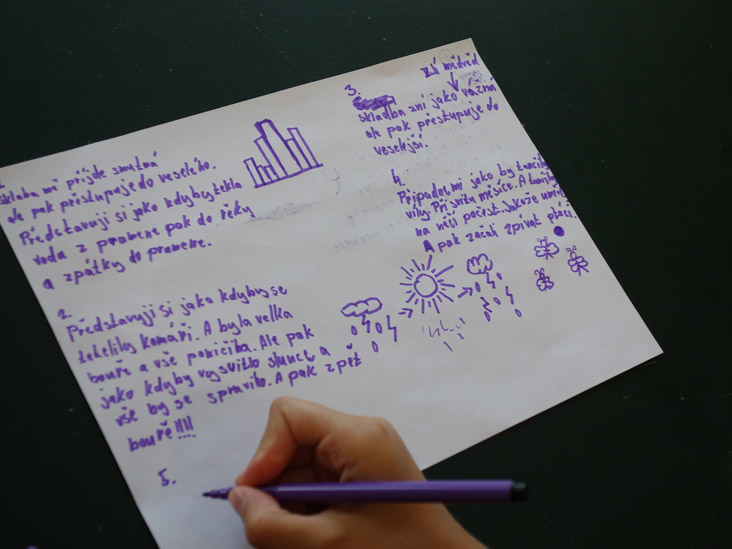 skladba mě přijde smutná
ale pak přestupuje do veselého.
Představuji si jako kdyby tekla
voda z pramene pak do řeky
a zpátky do pramene.
2.
Představuji si jako kdyby se
komáři. A byla velka
bouře a vše poničila. Ale pak
jako kdyby vysvitlo slunce a
vše by se spravilo. A pak zpět
bouře!!!!
3.
medvěd
skladba zní jako vážná
ale pak přestupuje do
veselejší.
4.
Připadá mi jako by tančily
víly. Při svitu měsíce. A
na něčí počest.
A pak začali zpívat ptáci.
5.